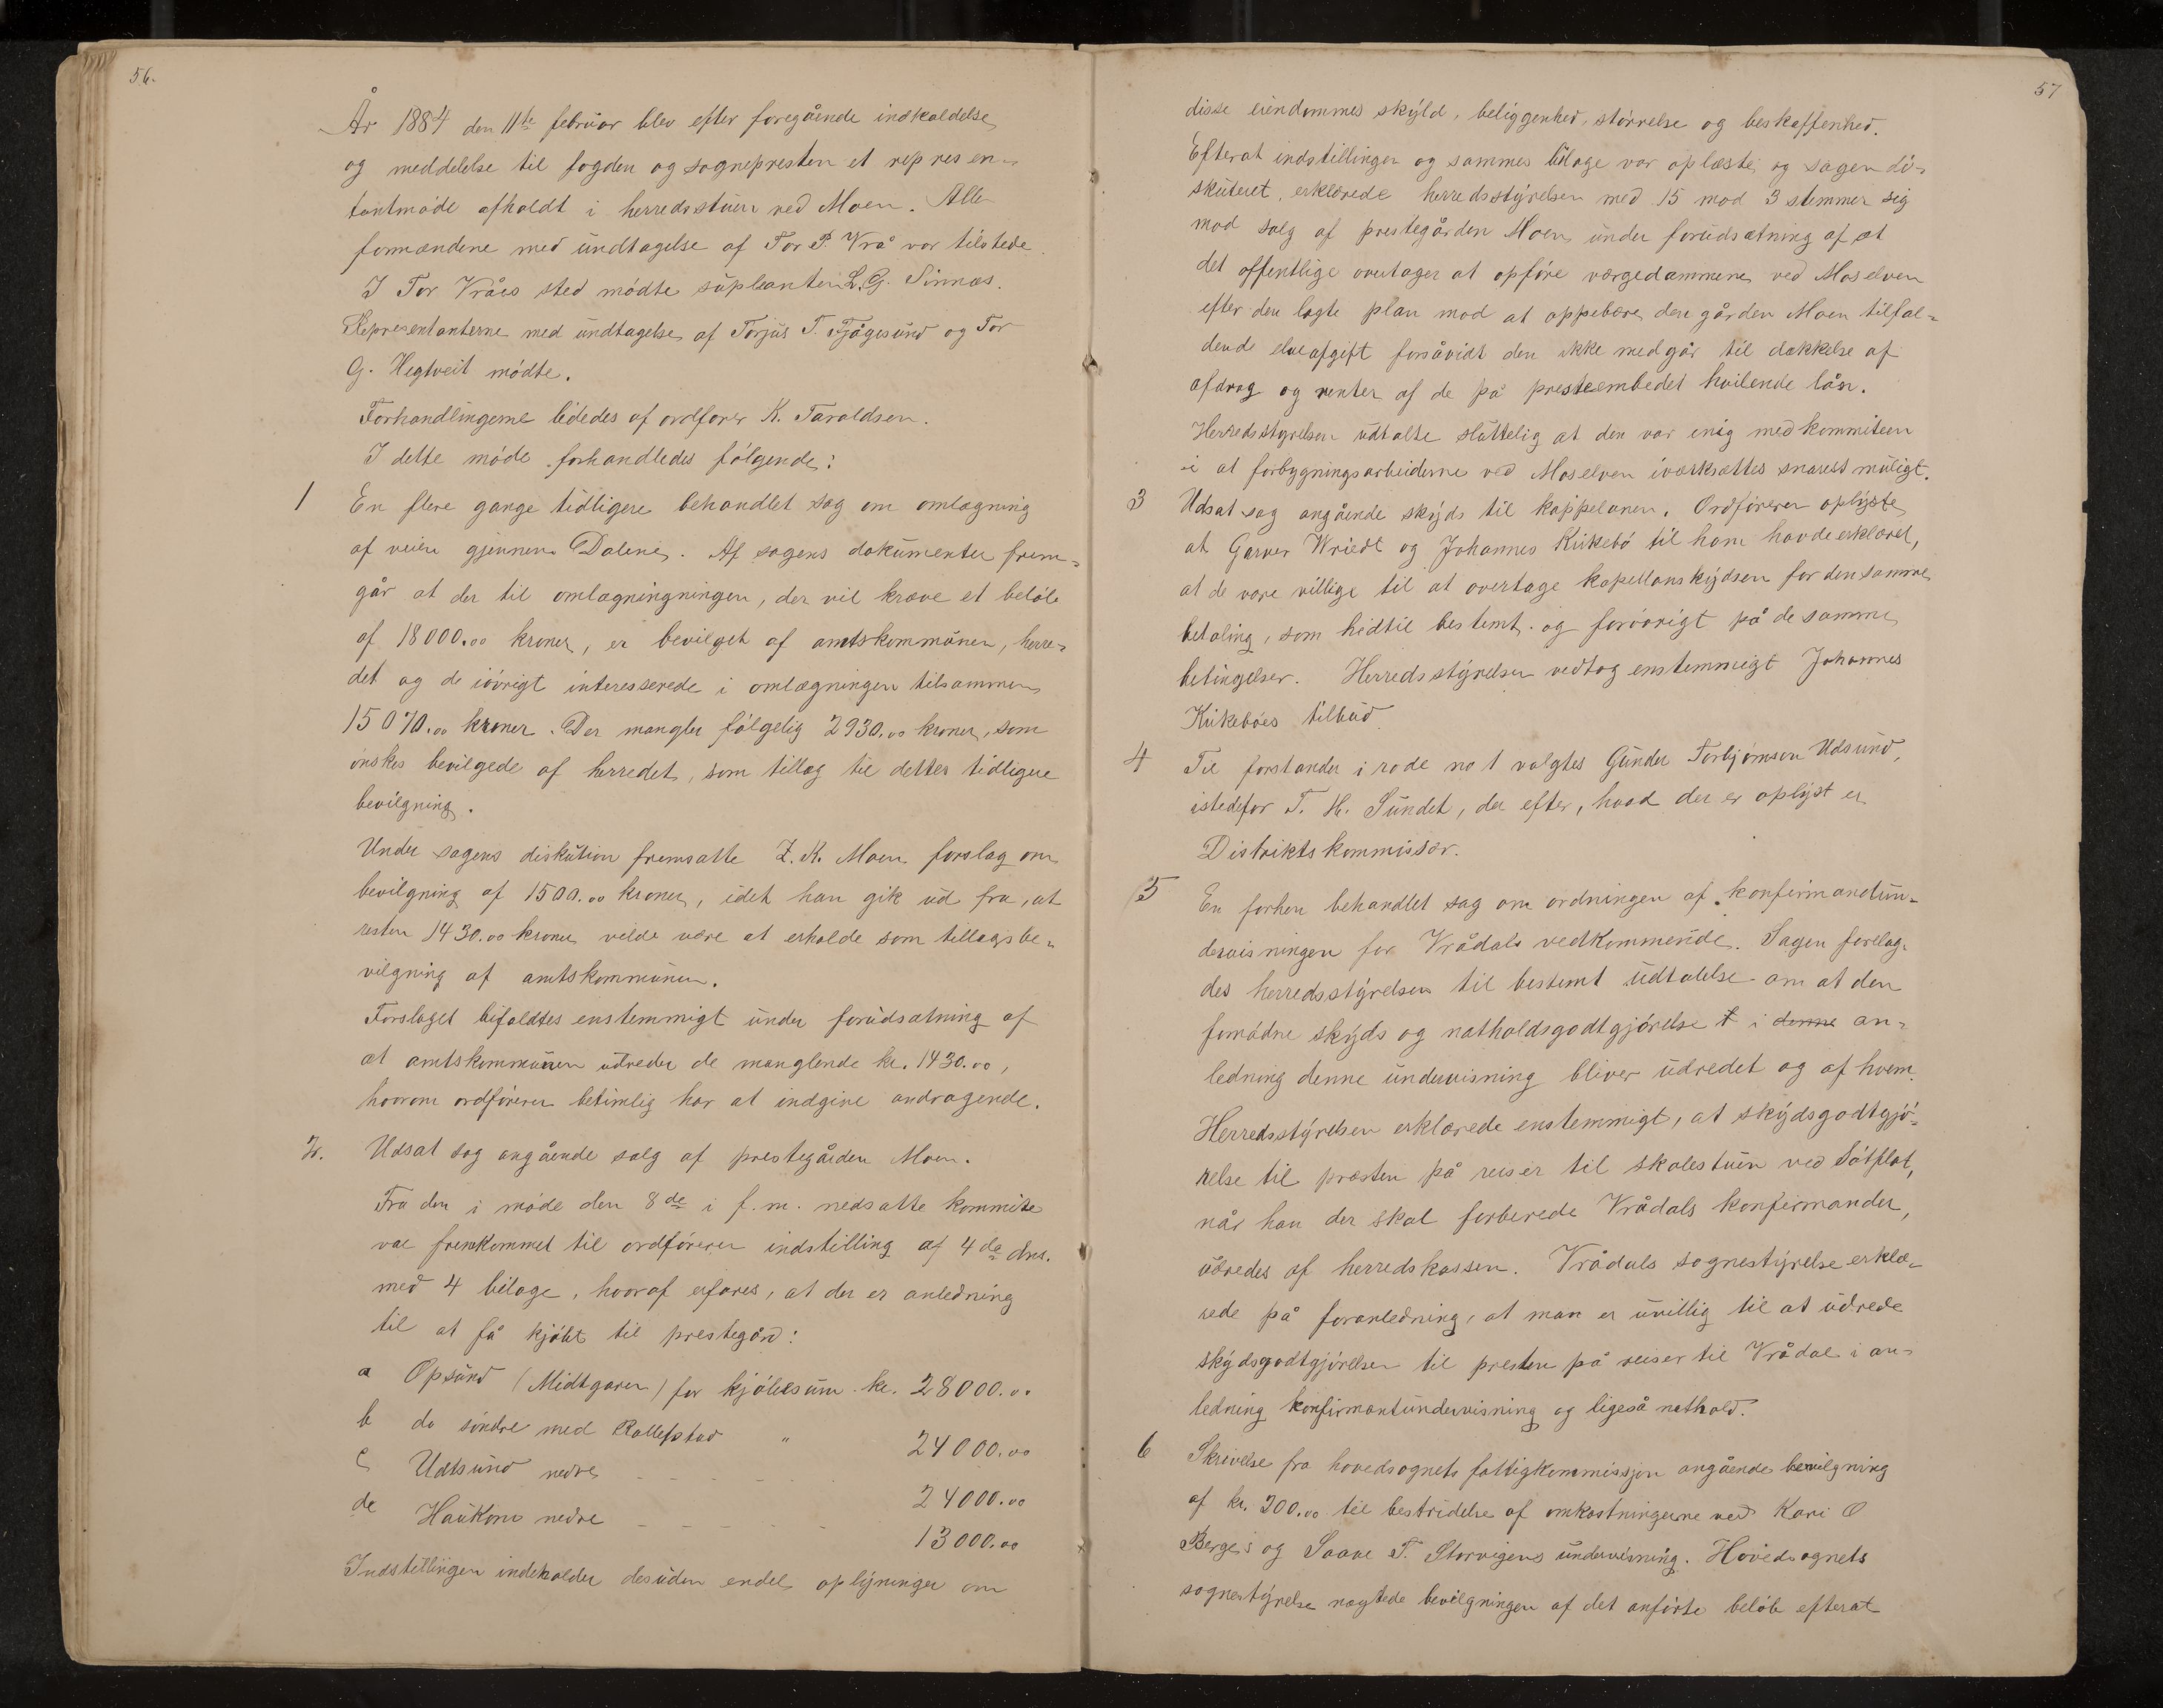 56.
År 1884 den 11te februar blev efter foregående indkaldelse
og meddelelse til fogden og sognepresten et represen-
tantmøde afholdt i herredsstuen ved Moen. Alle
formændene med undtagelse af Tor P. Vrå var tilstede.
I Tor Vråes sted mødte suplanten L. G. Sinnæs.
Representanterne med undtagelse af Torjus T. Fjågesund og Tor
G. Hegtveit mødte.
Forhandlingerne lededes af ordfører K. Taraldsen.
I dette møde forhandledes følgende:
1 En flere gange tidligere behandlet sag om omlægning
af veien gjennem Dalene. Af sagens dokumenter frem-
går at der til omlægningningen, der vil kræve et beløb
af 18000.00 kroner, er bevilget af amtskommunen, herre-
det og de iøvrigt interesserede i omlægningen tilsammen
15070.00 kroner. Der mangler følgelig 2930.00 kroner, som
ønskes bevilgede af herredet, som tillæg til dettes tidligere
bevilgning.
Under sagens diskution fremsatte Z. K. Moen forslag om
bevilgning af 1500.00 kroner, idet han gik ud fra, at
resten 1430.00 kroner vilde være at erholde som tillægsbe-
vilgning af amtskommunen.
Forslaget bifaldtes enstemmigt under forudsætning af
at amtskommunen udreder de manglende kr. 1430.00,
hvorom ordføreren betimelig har at indgive andragende.
2. Udsat sag angående salg af prestegården Moen.
Fra den i møde den 8de i f. m. nedsatte kommite
var fremkommet til ordføreren indstilling af 4de dns.
med 4 bilage, hvoraf erfares, at der er anledning
til at få kjøbt til prestegård:
a Opsund (Midtgaren) for kjøbesum kr. 28000.00
b do søndre med Rollefstad " 24000.00
c Udtsund nedre - - - - - 24000.00
de Haukom nedre - - - - - 13000.00
Indstillingen indeholder desuden endel oplysninger om
57
disse eiendommes skyld, beliggenhed, størrelse og beskaffenhed.
Efterat indstillingen og sammes bilage var oplæste og sagen di-
skuteret, erklærede herredsstyrelsen med 15 mod 3 stemmer sig
mod salg af prestegården Moen under forudsætning af at
det offentlige overtager at opføre værgedammene ved Moselven
efter den lagte plan mod at oppebære den gården Moen tilfal-
dend elveafgift forsåvidt den ikke medgår til dækkelse af
afdrag og renter af de på presteembedet hvilende lån.
Herredsstyrelsen udtalte sluttelig at den var enig med kommiteen
i at forbygningsarbeiderne ved Moselven iværksættes snarest muligt.
3 Udsat sag angående skyds til kappelanen. Ordføreren oplyste
at Garver Wriedt og Johannes Kirkebø til ham havde erklæret,
at de vare villige til at overtage kapellanskydsen for den samme
betaling, som hidtil bestemt og forøvrigt på de samme
betingelser. Herredsstyrelsen vedtog enstemmigt Johannes
Kirkebøes tilbud.
4 Til forstander i rode no 1 valgtes Gunder Torbjørnsen Udsund,
istedefor T. H. Sundet, der efter, hvad der er oplyst er
Distriktskommissær.
5 En forhen behandlet sag om ordningen af konfirmandtun-
dervisningen for Vrådals vedkommende. Sagen forelag-
des herredsstyrelsen til bestemt udtalelse om at den
fornødne skyds og natholdsgodtgjørelse t i denne an-
ledning denne undervisning bliver udredet og af hvem.
Herredsstyrelsen erklærede enstemmigt, at skydsgodtgjø-
relse til præsten på reiser til skolestuen ved Såtflat,
når han der skal forberede Vrådals konfirmander,
udredes af herredskassen. Vrådals sognestyrelse erklæ-
rede på foranledning, at man er uvillig til at udrede
skydsgodtgjørelsen til presten på reiser til Vrådal i an-
ledning konfirmantundervisning og ligeså nathold.
6 Skrivelse fra hovedsognets fattigkommissjon angående bevilgning
af kr. 200.00 til bestridelse af omkostningerne ved Kari O
Berge's og Saave T. Storvigens undervisning. Hovedsognets
sognestyrelse nægtede bevilgningen af det anførte beløb efterat